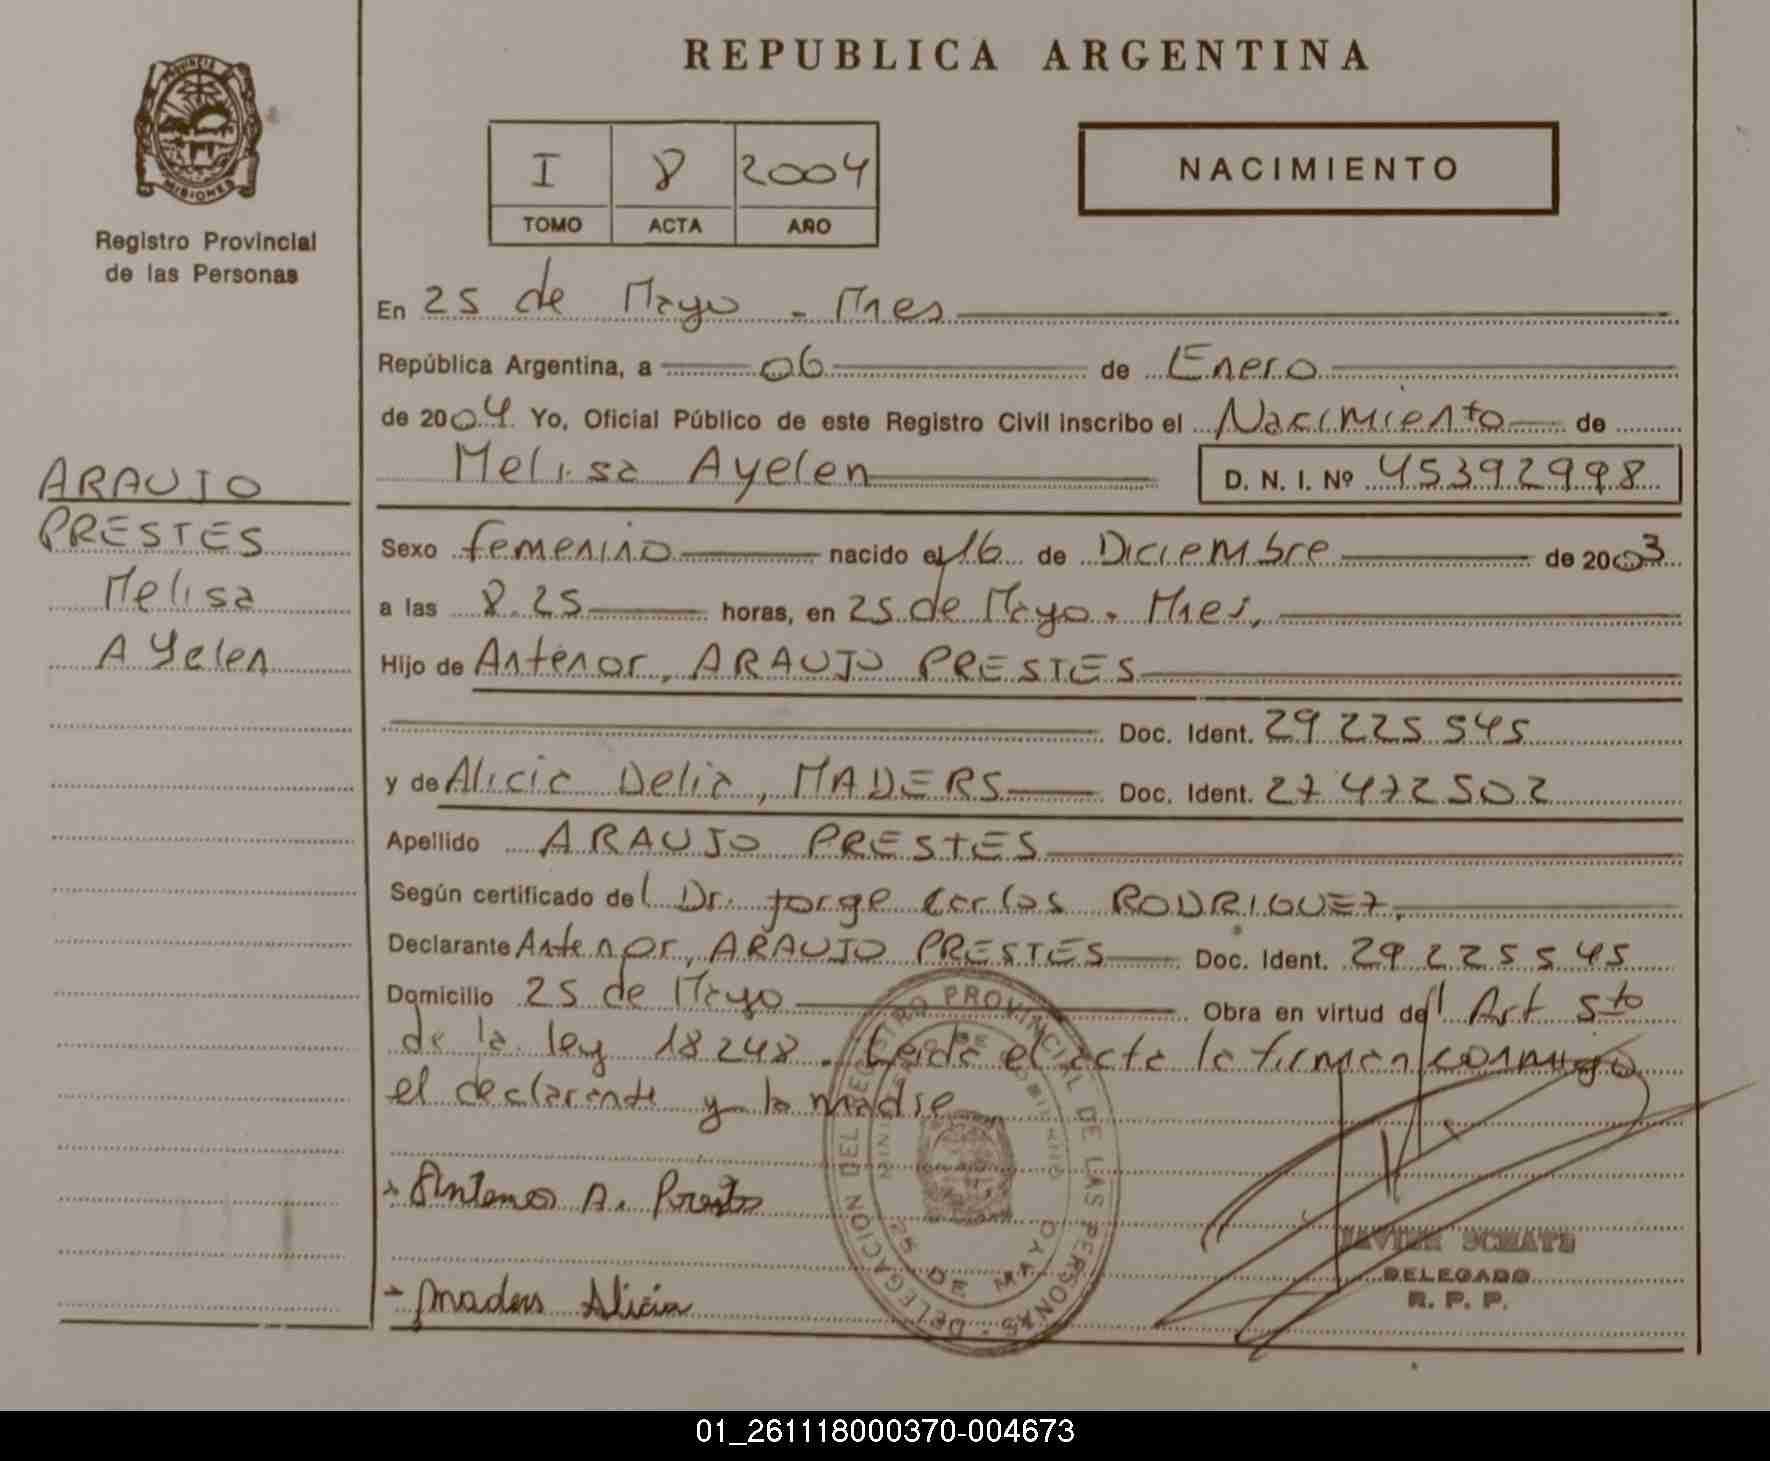 REPUBLICA ARGENTINA
PROVINCIA DE
MISIONES
Registro Provincial
de las Personas
I 8 2004
TOMO ACTA AÑO
NACIMIENTO
En 25 de Mayo - Mnes
República Argentina, a 06 de Enero
de 2004 Yo, Oficial Público de este Registro Civil inscribo el Nacimiento de
Melisa Ayelen D. N. I. Nº 45392998
ARAUJO
PRESTES
Melisa
AYelen
Sexo femenino nacido el 16 de Diciembre de 2003
a las 8.25 horas, en 25 de Mayo. Mnes,
Hijo de Antenor, ARAUJO PRESTES
Doc. Ident. 29 225 545
y de Alicia Delia, MADERS Doc. Ident. 27 472502
Apellido ARAUJO PRESTES
Según certificado del Dr. Jorge Carlos RODRIGUEZ.
Declarante Antenor, ARAUJO PRESTES Doc. Ident. 29 225545
Domicilio 25 de Mayo Obra en virtud del Art 5to
de la ley 18248. Leida el acta la firman conmigo
el declarante y la madre
Antenor A. Prestes
Maders Alicia
DELEGACION DEL REGISTRO PROVINCIAL DE LAS PERSONAS
25 DE MAYO
JAVIER SCHATZ
DELEGADO
R. P. P.
01_261118000370-004673